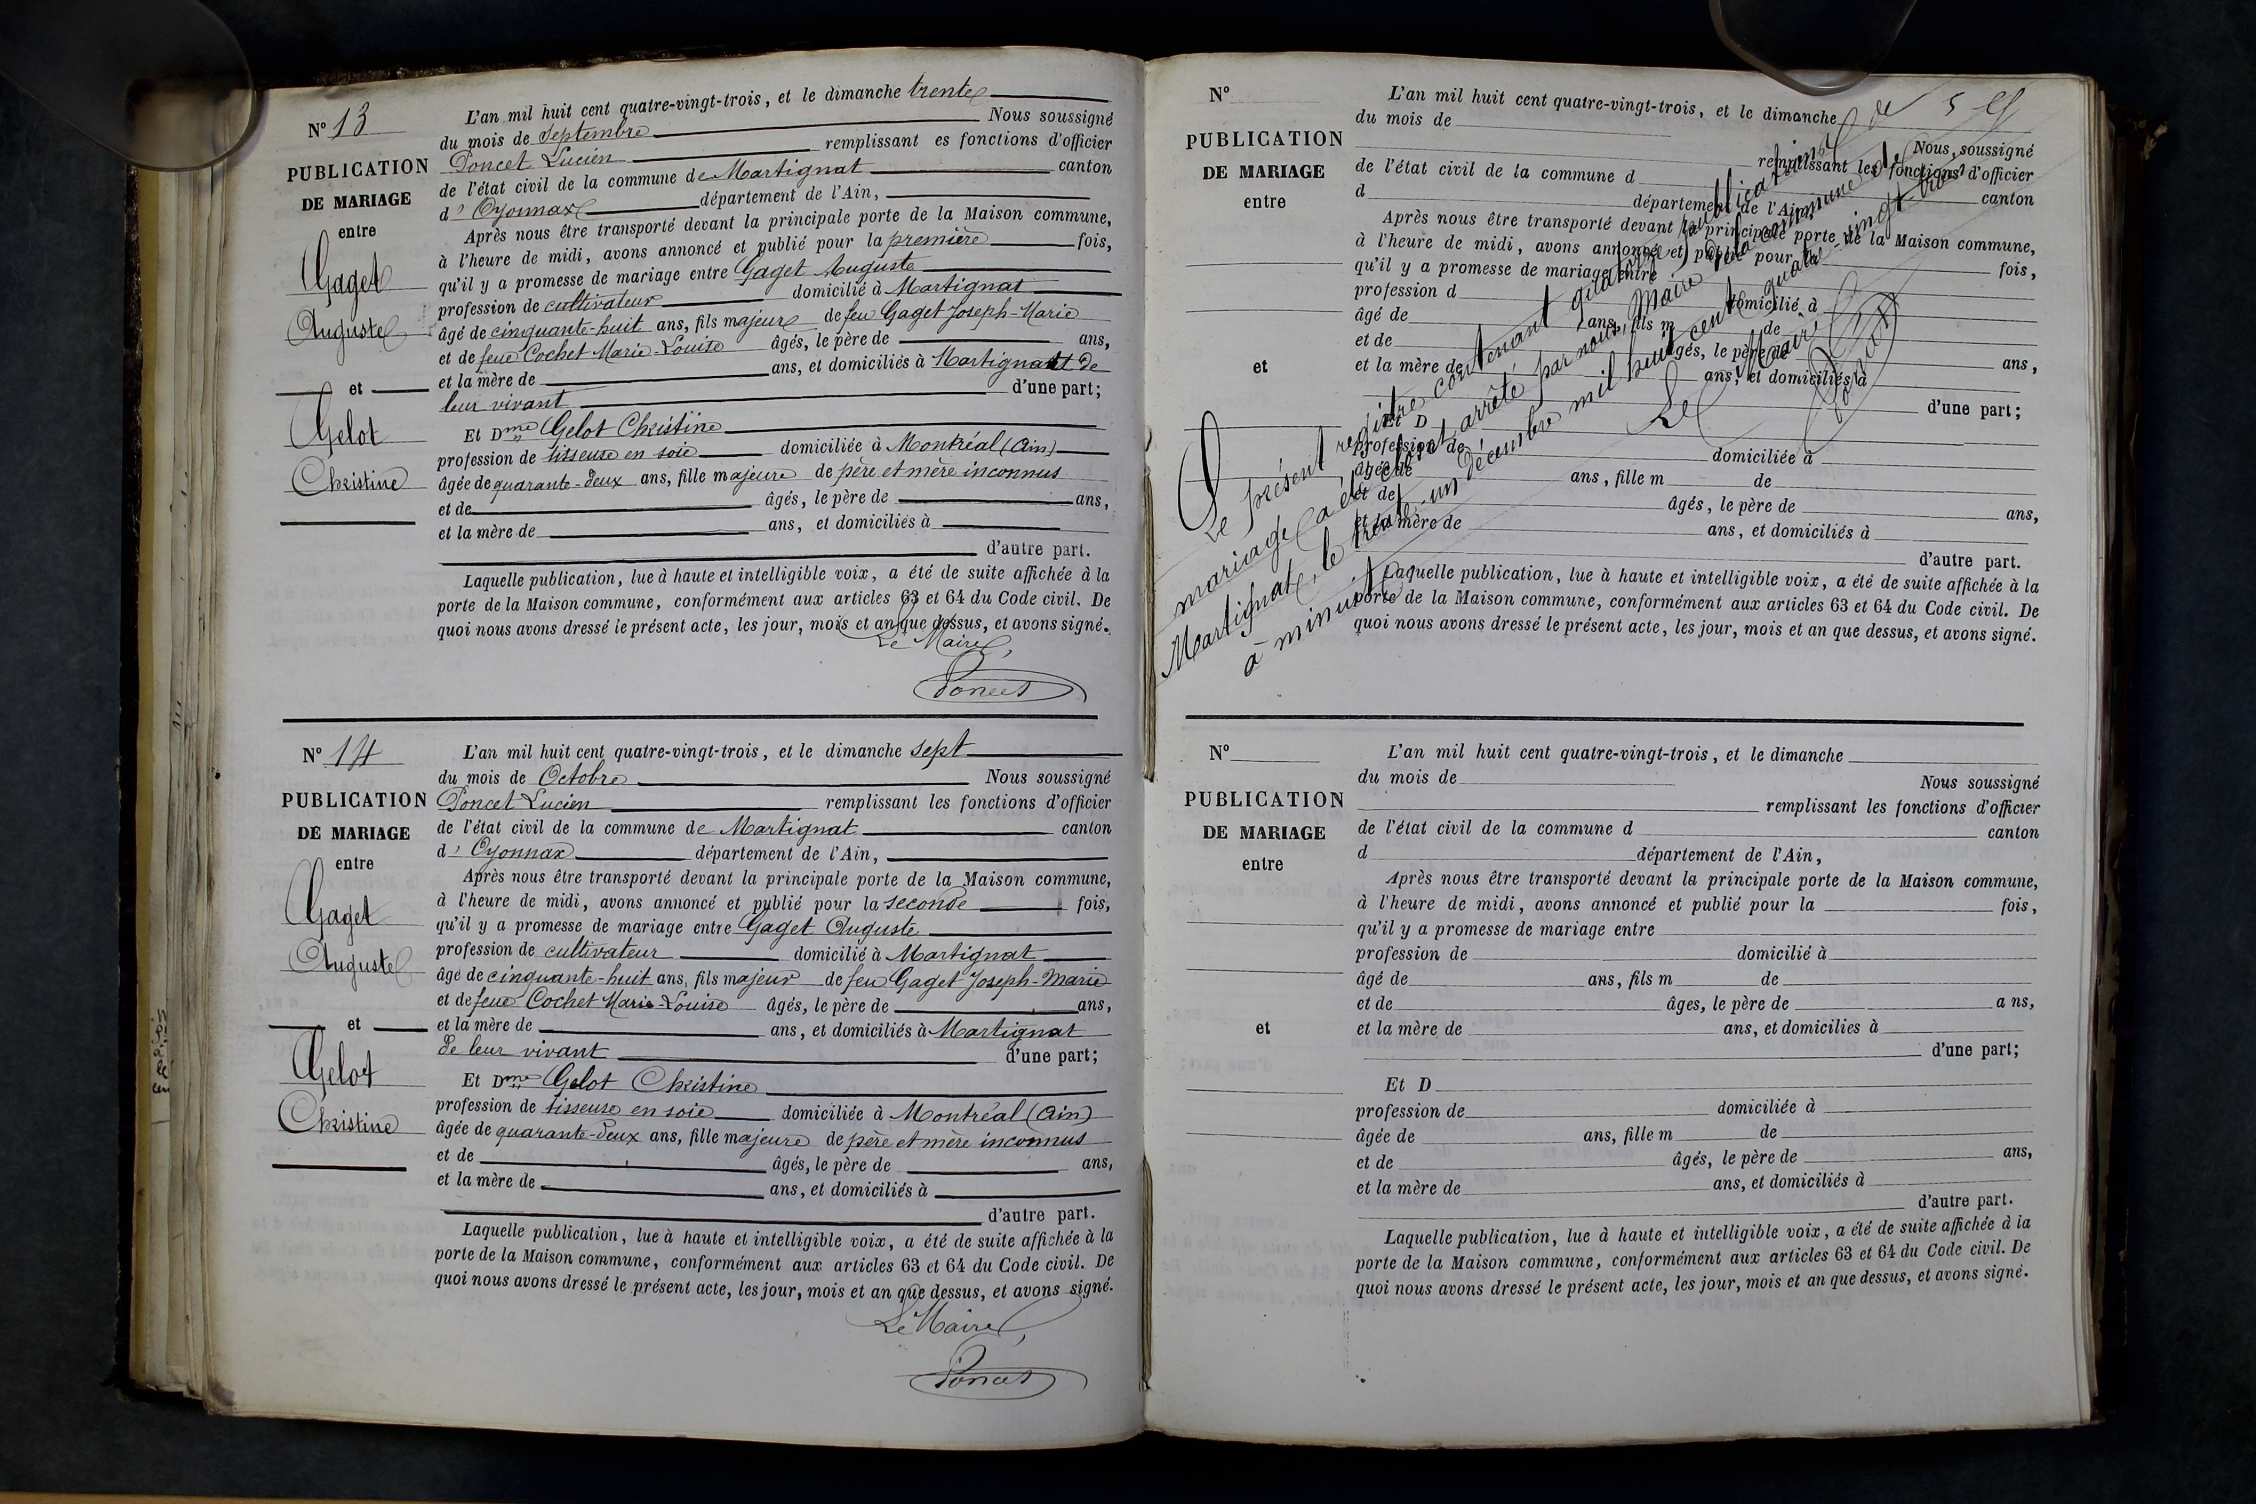 N° 13
PUBLICATION
DE MARIAGE
entre
Gaget
Auguste
et
Gelot
Christine
L'an mil huit cent quatre-vingt-trois, et le dimanche trente
du mois de Septembre Nous soussigné
Poncet Lucien remplissant es fonctions d'officier
de l'état civil de la commune de Martignat canton
d'Oyonnax département de l'Ain,
Après nous être transporté devant la principale porte de la Maison commune,
à l'heure de midi, avons annoncé et publié pour la première fois,
qu'il y a promesse de mariage entre Gaget Auguste
profession de cultivateur domicilié à Martignat
âgé de cinquante-huit ans, fils majeur de feu Gaget Joseph-Marie
et de feue Cochet Marie-Louise âgés, le père de ans,
et la mère de ans, et domiciliés à Martignat de
leur vivant d'une part;
Et Dme Gelot Christine
profession de tisseuse en soie domiciliée à Montréal (Ain)
âgée de quarante-deux ans, fille majeure de père et mère inconnus
et de âgés, le père de ans,
et la mère de ans, et domiciliés à
d'autre part.
Laquelle publication, lue à haute et intelligible voix, a été de suite affichée à la
porte de la Maison commune, conformément aux articles 63 et 64 du Code civil. De
quoi nous avons dressé le présent acte, les jour, mois et an que dessus, et avons signé.
Le Maire,
Poncet
N° 14
PUBLICATION
DE MARIAGE
entre
Gaget
Auguste
et
Gelot
Christine
L'an mil huit cent quatre-vingt-trois, et le dimanche sept
du mois de Octobre Nous soussigné
Poncet Lucien remplissant les fonctions d'officier
de l'état civil de la commune de Martignat canton
d'Oyonnax département de l'Ain,
Après nous être transporté devant la principale porte de la Maison commune,
à l'heure de midi, avons annoncé et publié pour la seconde fois,
qu'il y a promesse de mariage entre Gaget Auguste
profession de cultivateur domicilié à Martignat
âgé de cinquante-huit ans, fils majeur de feu Gaget Joseph-Marie
et de feue Cochet Marie-Louise âgés, le père de ans,
et la mère de ans, et domiciliés à Martignat
de leur vivant d'une part;
Et Dme Gelot Christine
profession de tisseuse en soie domiciliée à Montréal (Ain)
âgée de quarante-deux ans, fille majeure de père et mère inconnus
et de âgés, le père de ans,
et la mère de ans, et domiciliés à
d'autre part.
Laquelle publication, lue à haute et intelligible voix, a été de suite affichée à la
porte de la Maison commune, conformément aux articles 63 et 64 du Code civil. De
quoi nous avons dressé le présent acte, les jour, mois et an que dessus, et avons signé.
Le Maire,
Poncet
N°
PUBLICATION
DE MARIAGE
entre
et
L'an mil huit cent quatre-vingt-trois, et le dimanche
du mois de
Nous, soussigné
remplissant les fonctions d'officier
de l'état civil de la commune d canton
d département de l'Ain,
Après nous être transporté devant la principale porte de la Maison commune,
à l'heure de midi, avons annoncé et publié pour la fois,
qu'il y a promesse de mariage entre
profession d domicilié à
âgé de ans, fils m de
et de âgés, le père de ans,
et la mère de ans, et domiciliés à
d'une part;
Et D
profession de domiciliée à
âgée de ans, fille m de
et de âgés, le père de ans,
et la mère de ans, et domiciliés à
d'autre part.
Laquelle publication, lue à haute et intelligible voix, a été de suite affichée à la
porte de la Maison commune, conformément aux articles 63 et 64 du Code civil. De
quoi nous avons dressé le présent acte, les jour, mois et an que dessus, et avons signé.
Le présent registre contenant publications de
mariage a été clos et arrêté par nous, Maire de la commune de
Martignat, le trente-un décembre mil huit cent quatre-vingt-trois
à minuit
Le Maire
Poncet
N°
PUBLICATION
DE MARIAGE
entre
et
L'an mil huit cent quatre-vingt-trois, et le dimanche
du mois de Nous soussigné
remplissant les fonctions d'officier
de l'état civil de la commune d canton
d département de l'Ain,
Après nous être transporté devant la principale porte de la Maison commune,
à l'heure de midi, avons annoncé et publié pour la fois,
qu'il y a promesse de mariage entre
profession de domicilié à
âgé de ans, fils m de
et de âges, le père de ans,
et la mère de ans, et domicilies à
d'une part;
Et D
profession de domiciliée à
âgée de ans, fille m de
et de âgés, le père de ans,
et la mère de ans, et domiciliés à
d'autre part.
Laquelle publication, lue à haute et intelligible voix, a été de suite affichée à la
porte de la Maison commune, conformément aux articles 63 et 64 du Code civil. De
quoi nous avons dressé le présent acte, les jour, mois et an que dessus, et avons signé.